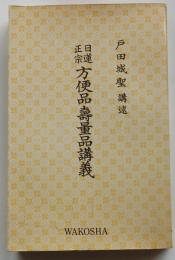 戸田城聖 講述
日蓮正宗 方便品・壽量品講義
WAKOSHA